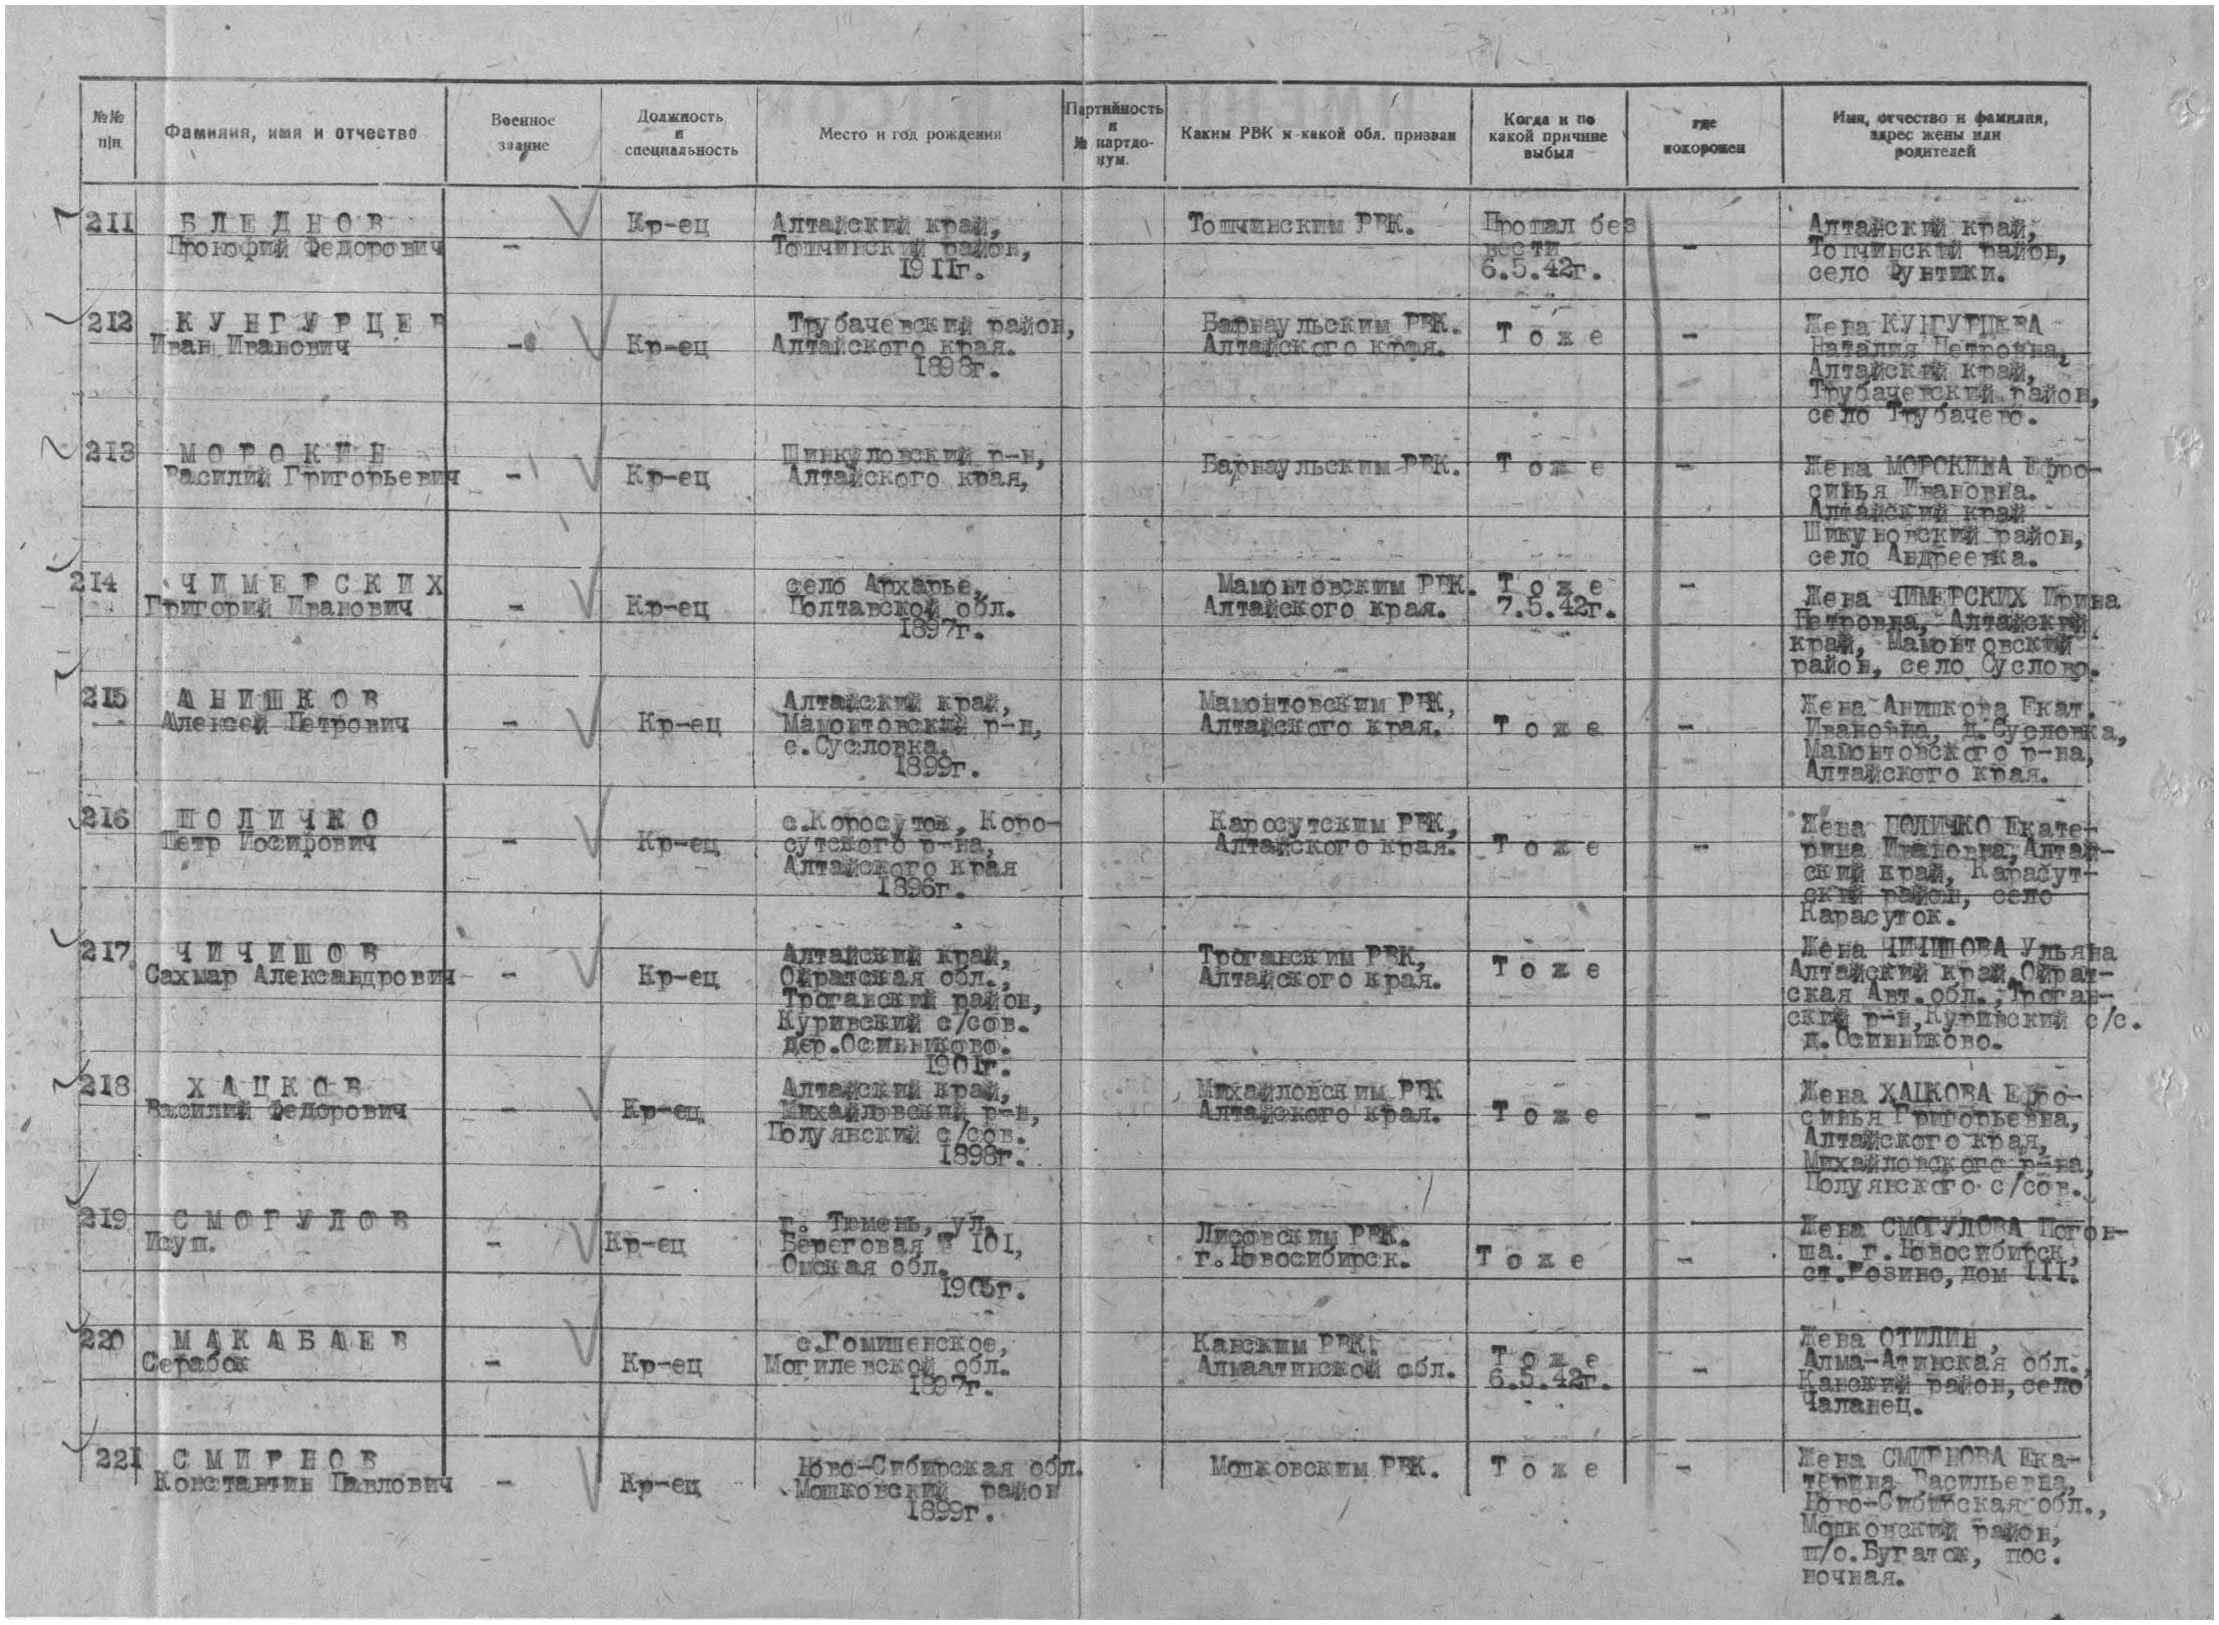 №№ п|п
Фамилия, имя и отчество
Военное звание
Должность и специальность
Место и год рождения
Партийность и № партдокум.
Каким РВК и какой обл. призван
Когда и по какой причине выбыл
где похоронен
Имя, отчество и фамилия, адрес жены или родителей
211
БЛЕДНОВ
Прокофий Федорович
-
Кр-ец
Алтайский край,
Топчинский район,
1911г.
Топчинским РВК.
Пропал без
вести
6.5.42г.
-
Алтайский край,
Топчинский район,
село Фунтики.
212
КУНГУРЦЕВ
Иван Иванович
-
Кр-ец
Трубачевский район,
Алтайского края.
1898г.
Барнаульским РВК.
Алтайского края.
Тоже
-
Жена КУНГУРЦЕВА
Наталия Петровна,
Алтайский край,
Трубачевский район,
село Трубачево.
213
МОРОКИН
Василий Григорьевич
-
Кр-ец
Шинкуловский р-н,
Алтайского края,
Барнаульским РВК.
Тоже
-
Жена МОРОКИНА Ефро-
синья Ивановна.
Алтайский край
Шикуновский район,
село Андреевка.
214
ЧИМЕРСКИХ
Григорий Иванович
-
Кр-ец
село Архарье,
Полтавской обл.
1897г.
Мамонтовским РВК.
Алтайского края.
Тоже
7.5.42г.
-
Жена ЧИМЕРСКИХ Ирина
Петровна, Алтайский
край, Мамонтовский
район, село Суслово.
215
АНИШКОВ
Алексей Петрович
-
Кр-ец
Алтайский край,
Мамонтовский р-н,
с.Сусловка.
1899г.
Мамонтовским РВК,
Алтайского края.
Тоже
-
Жена Анишкова Екат.
Ивановна, д.Сусловка,
Мамонтовского р-на,
Алтайского края.
216
ПОЛИЧКО
Петр Иосифович
-
Кр-ец
с.Коросуток, Коро-
сутского р-на,
Алтайского края
1896г.
Каросутским РВК,
Алтайского края.
Тоже
-
Жена ПОЛИЧКО Екате-
рина Ивановна, Алтай-
ский край, Карасут-
ский район, село
Карасуток.
217
ЧИЧИШОВ
Сахмар Александрович
-
Кр-ец
Алтайский край,
Ойратская обл.,
Троганский район,
Куривский с/сов.
дер.Осинниково.
1901г.
Троганским РВК,
Алтайского края.
Тоже
Жена ЧИЧИШОВА Ульяна
Алтайский край, Ойрат-
ская Авт.обл., Троган-
ский р-н, Куривский с/с.
д.Осинниково.
218
ХАЦКОВ
Василий Федорович
-
Кр-ец
Алтайский край,
Михайловский р-н,
Полуянский с/сов.
1898г.
Михайловским РВК
Алтайского края.
Тоже
-
Жена ХАЦКОВА Ефро-
синья Григорьевна,
Алтайского края,
Михайловского р-на,
Полуянского с/сов.
219
СМОГУЛОВ
Исуп.
-
Кр-ец
г. Тюмень, ул.
Береговая 101,
Омская обл.
1905г.
Лисовским РВК.
г.Новосибирск.
Тоже
-
Жена СМОГУЛОВА Погон-
ша. г.Новосибирск,
ст.Розино, дом 111.
220
МАКАБАЕВ
Серабок
-
Кр-ец
с.Гомиленское,
Могилевской обл.
1897г.
Канским РВК.
Алмаатинской обл.
Тоже
6.5.42г.
-
Жена ОТИЛИН,
Алма-Атинская обл.,
Канский район, село
Чаланец.
221
СМИРНОВ
Константин Павлович
-
Кр-ец
Ново-Сибирская обл.
Мошковский район
1899г.
Мошковским РВК.
Тоже
-
Жена СМИРНОВА Ека-
терина Васильевна,
Ново-Сибирская обл.,
Мошковский район,
п/о.Бугаток, пос.
ночная.